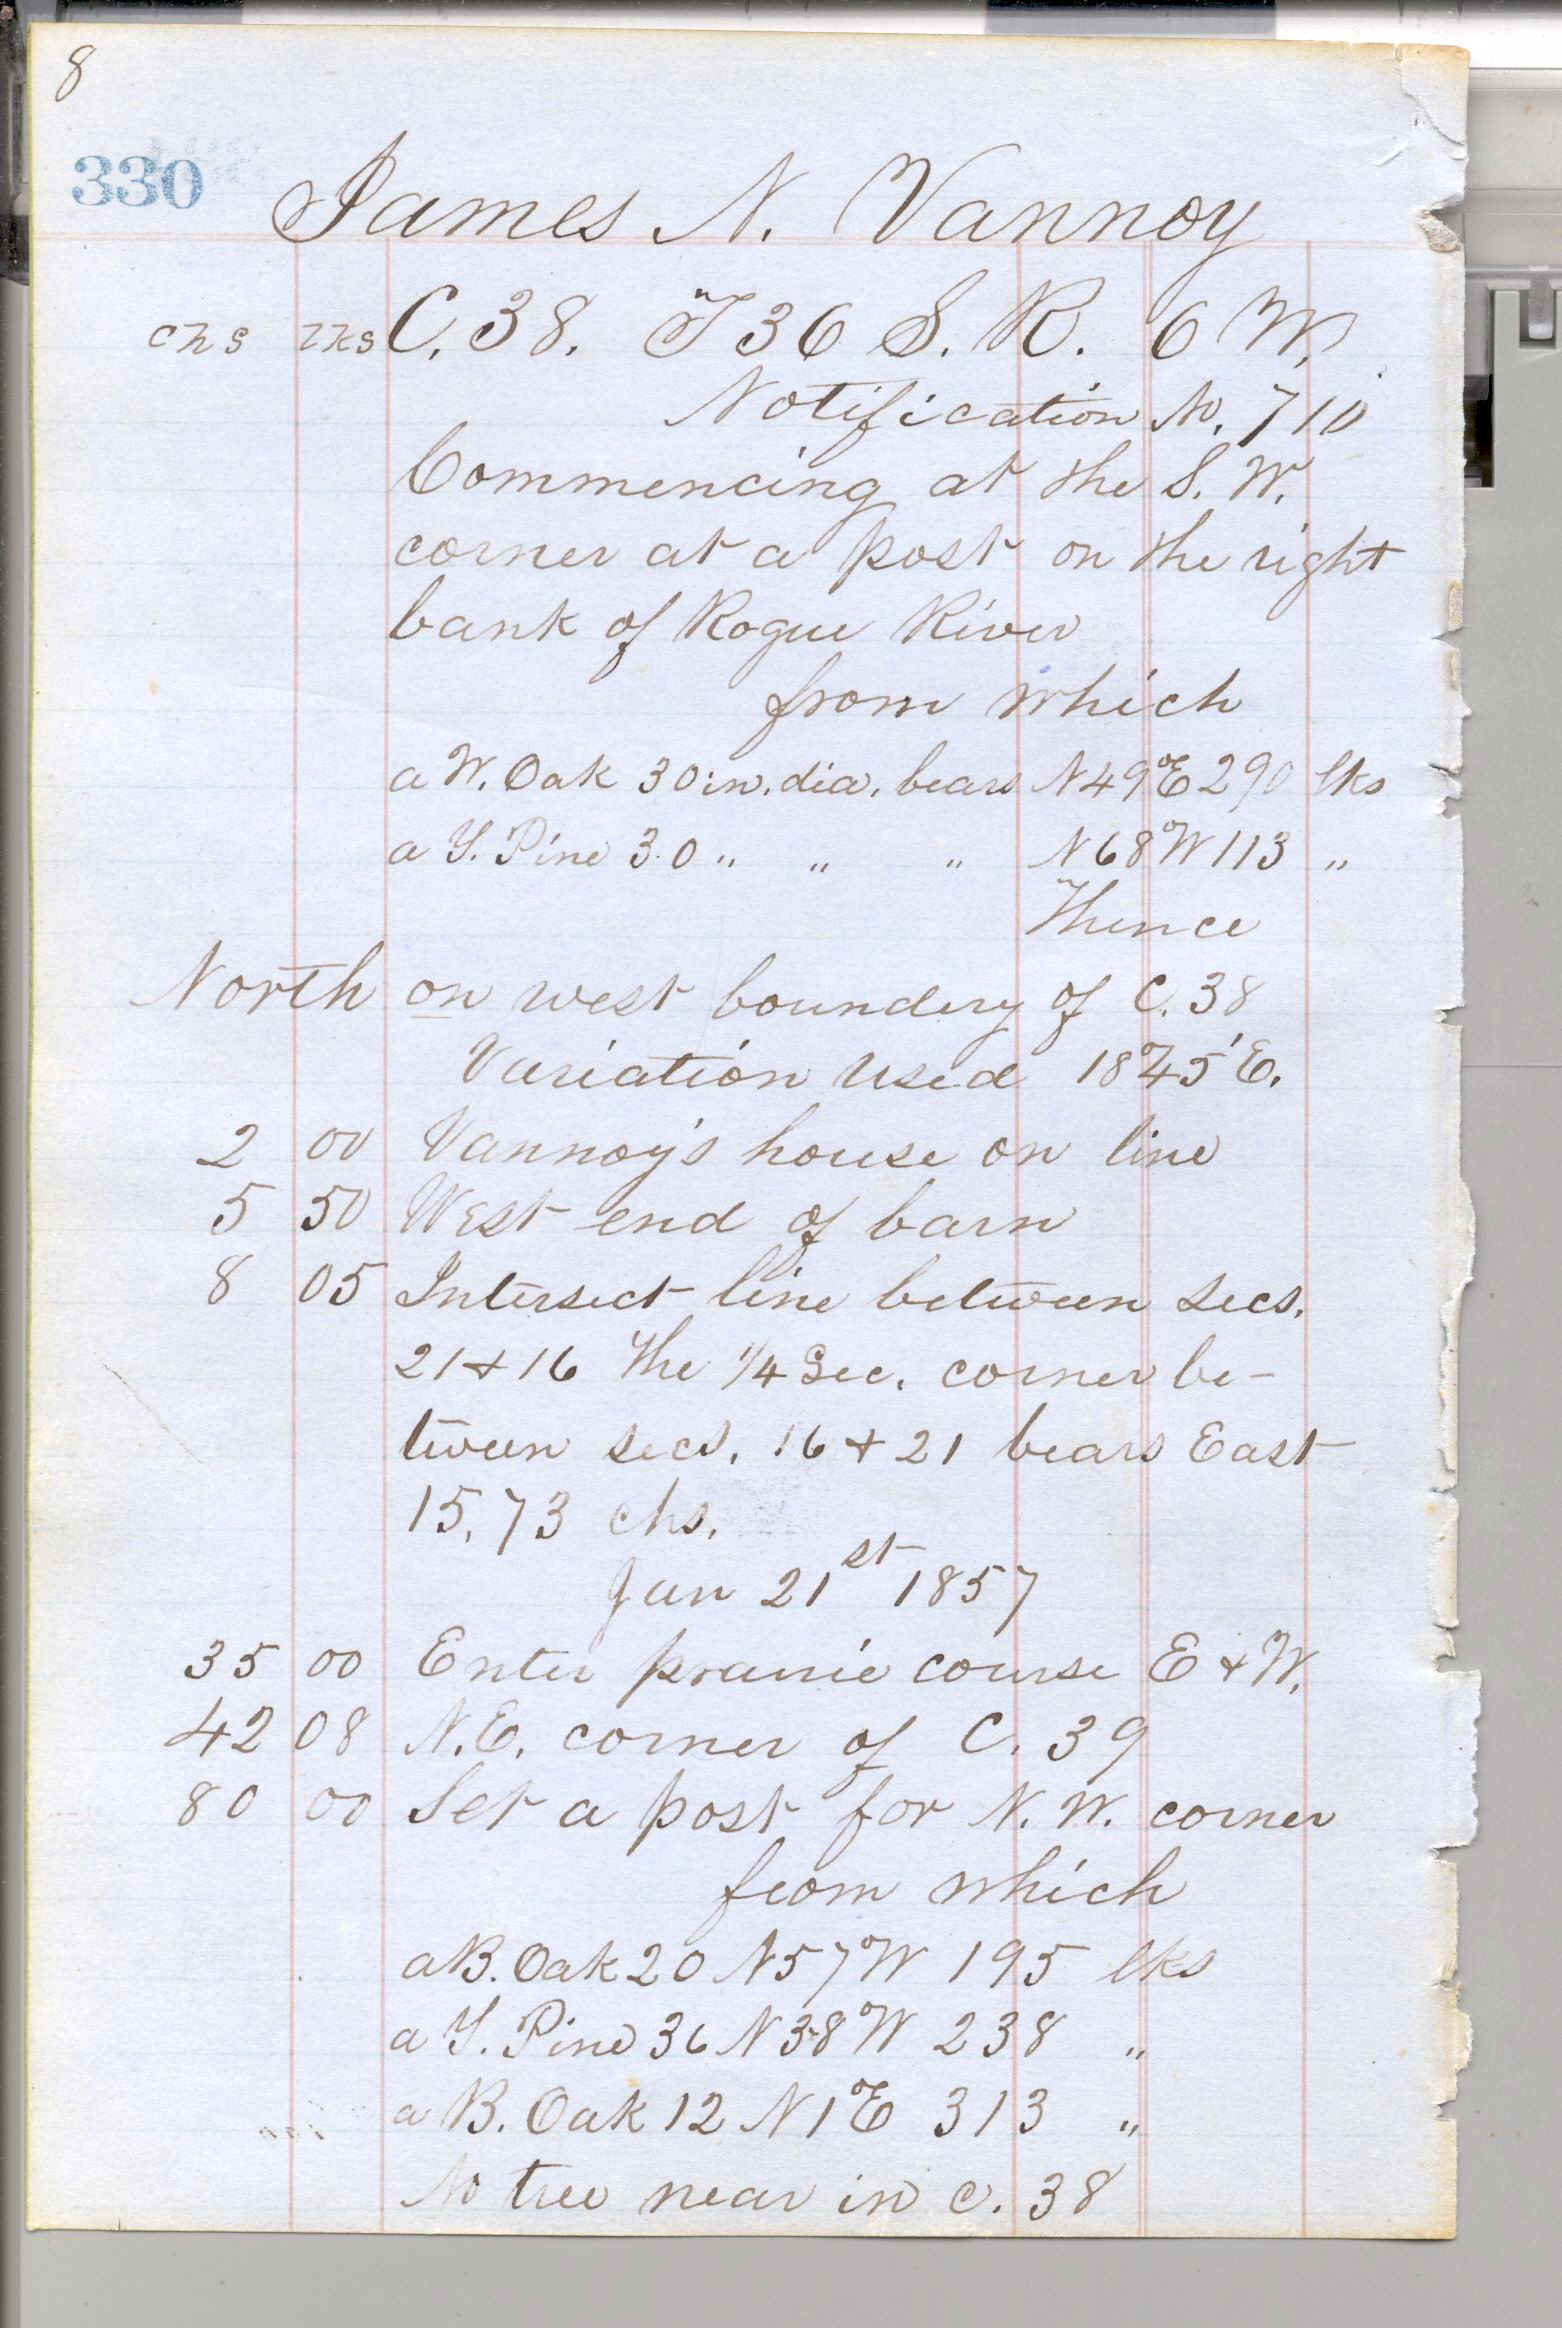 8
330
James N. Vannoy
chs lks C. 38. T 36 S. R. 6 W.
Notification No. 710
Commencing at the S. W.
corner at a post on the right
bank of Rogue River
from which
a W. Oak 30 in. dia. bears N 49° E 290 lks
a Y. Pine 30 " " " N 68° W 113 "
Thence
North on west boundery of C. 38
Variation used 18° 45' E.
2 00 Vannoy's house on line
5 50 West end of barn
8 05 Intersect line between secs.
21 & 16 The 1/4 Sec. corner be-
tween secs. 16 & 21 bears East
15.73 chs.
Jan 21st 1857
35 00 Enter prairie course E & W.
42 08 N.E. corner of C. 39
80 00 Set a post for N. W. corner
from which
a B. Oak 20 N 57° W 195 lks
a Y. Pine 36 N 38° W 238 "
a B. Oak 12 N 1° E 313 "
No tree near in C. 38